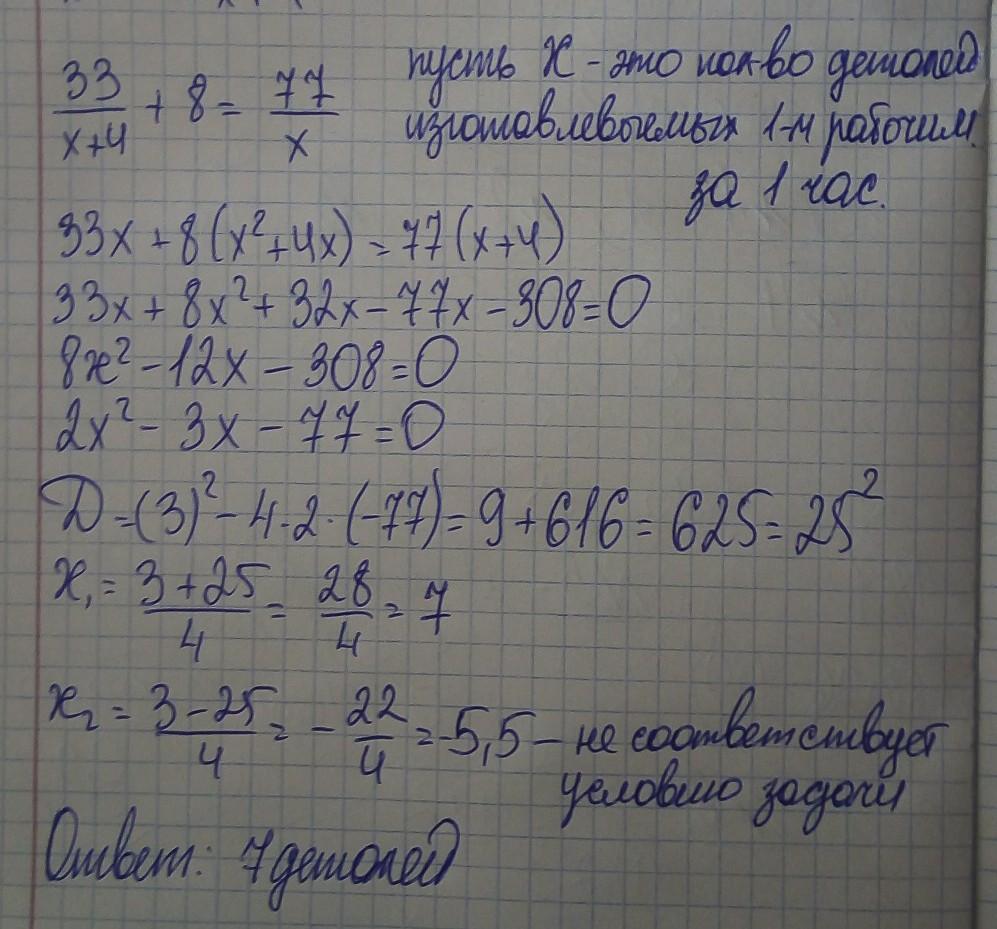 33/(x+4) + 8 = 77/x
пусть x - это кол-во деталей
изготавлевыемых 1-м рабочим
за 1 час.
33x + 8(x²+4x) = 77(x+4)
33x + 8x² + 32x - 77x - 308 = 0
8x² - 12x - 308 = 0
2x² - 3x - 77 = 0
D = (3)² - 4·2·(-77) = 9 + 616 = 625 = 25²
x₁ = (3+25)/4 = 28/4 = 7
x₂ = (3-25)/4 = -22/4 = -5,5 - не соответствует
условию задачи
Ответ: 7 деталей